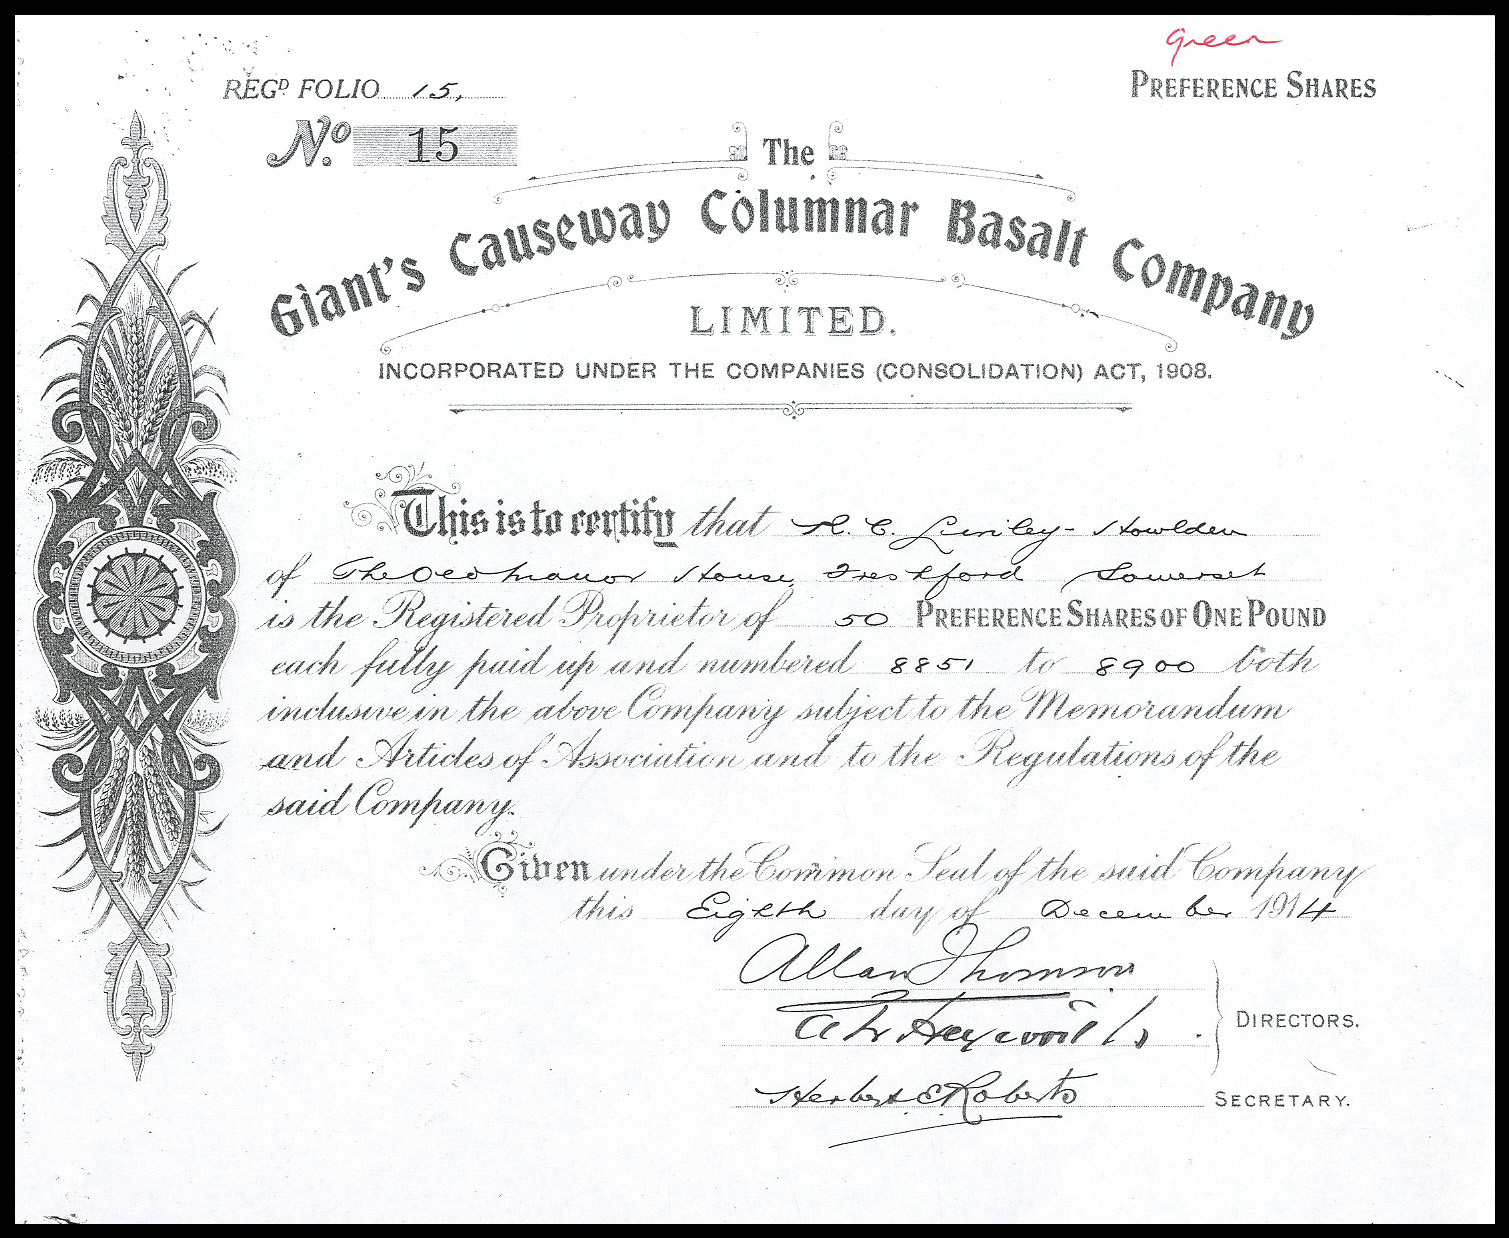 Green
PREFERENCE SHARES
REGD FOLIO 15,
No. 15
The
Giant's Causeway Columnar Basalt Company
LIMITED.
INCORPORATED UNDER THE COMPANIES (CONSOLIDATION) ACT, 1908.
This is to certify that H. C. Linley-Howlden
of The Old Manor House, Freshford Somerset
is the Registered Proprietor of 50 PREFERENCE SHARES OF ONE POUND
each fully paid up and numbered 8851 to 8900 both
inclusive in the above Company subject to the Memorandum
and Articles of Association and to the Regulations of the
said Company.
Given under the Common Seal of the said Company
this Eighth day of December 1914
Allan Thomson
DIRECTORS.
Herbert E Roberts
SECRETARY.